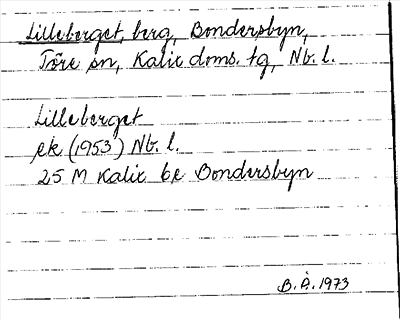 Lilleberget, berg, Bondersbyn,
Töre sn, Kalix doms. tg, Nb. l.
Lilleberget
ek (1953) Nb. l.
25 M Kalix 6e Bondersbyn
B. Å. 1973